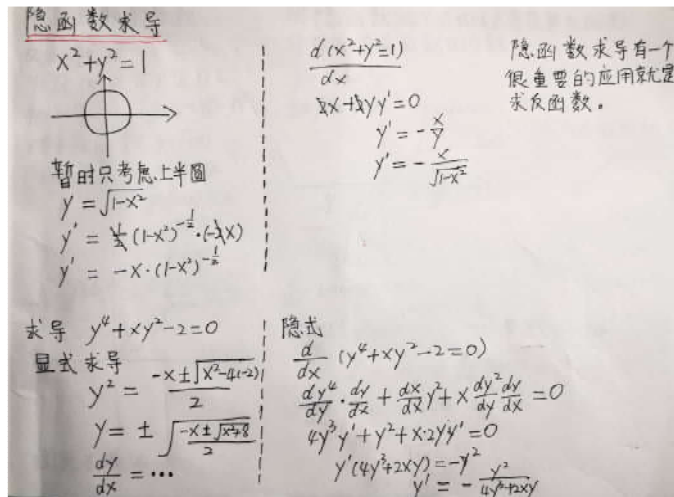 隐函数求导
x²+y²=1
暂时只考虑上半圆
y = √(1-x²)
y' = ½(1-x²)^(-½)·(-2x)
y' = -x·(1-x²)^(-½)
d(x²+y²=1)/dx
2x+2yy'=0
y' = -x/y
y' = -x/√(1-x²)
隐函数求导有一个
很重要的应用就是
求反函数。
求导 y⁴+xy²-2=0
显式求导
y² = (-x±√(x²-4(-2)))/2
y = ±√((-x±√(x²+8))/2)
dy/dx = ···
隐式
d/dx (y⁴+xy²-2=0)
dy⁴/dy · dy/dx + dx/dx y² + x dy²/dy dy/dx = 0
4y³y'+y²+x·2yy'=0
y'(4y³+2xy)=-y²
y' = -y²/(4y³+2xy)